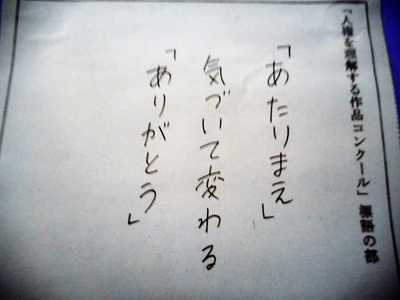 「人権を理解する作品コンクール」標語の部
「あたりまえ」
気づいて変わる
「ありがとう」